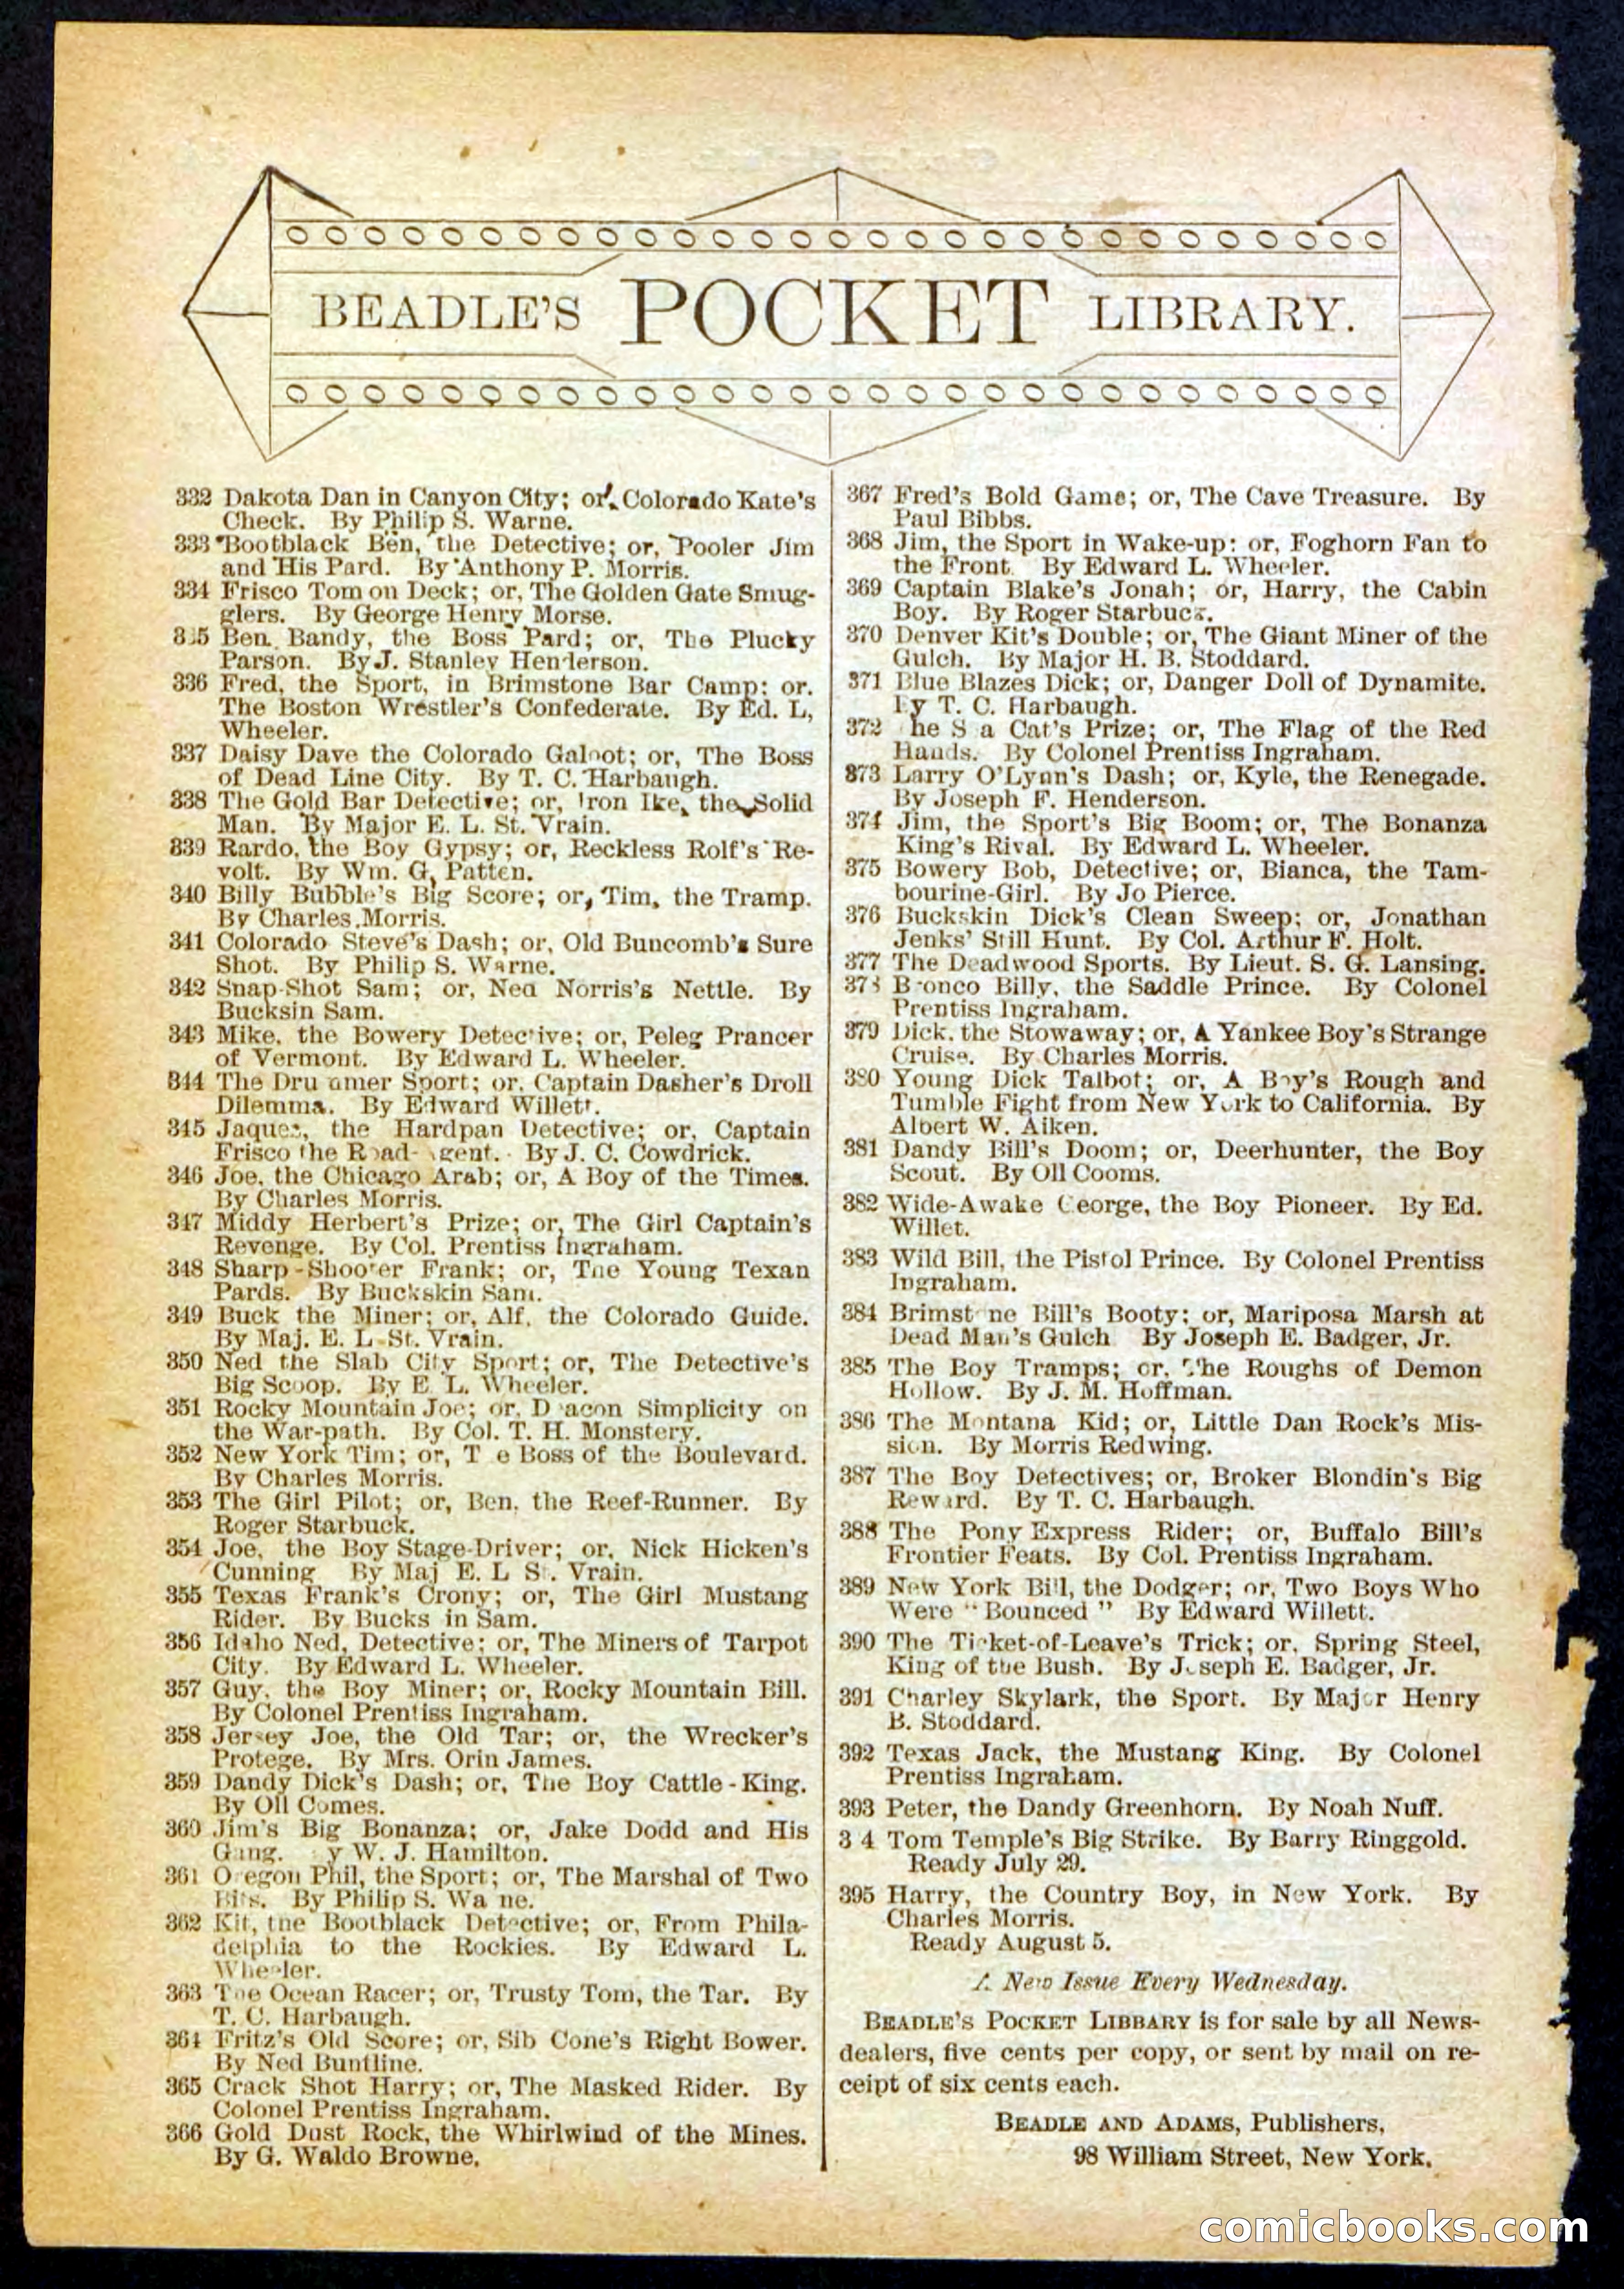 BEADLE'S POCKET LIBRARY.
332 Dakota Dan in Canyon City; or, Colorado Kate's
Check. By Philip S. Warne.
333 Bootblack Ben, the Detective; or, Pooler Jim
and His Pard. By Anthony P. Morris.
334 Frisco Tom on Deck; or, The Golden Gate Smug-
glers. By George Henry Morse.
335 Ben Bandy, the Boss Pard; or, The Plucky
Parson. By J. Stanley Henderson.
336 Fred, the Sport, in Brimstone Bar Camp; or.
The Boston Wrestler's Confederate. By Ed. L,
Wheeler.
337 Daisy Dave the Colorado Galoot; or, The Boss
of Dead Line City. By T. C. Harbaugh.
338 The Gold Bar Detective; or, Iron Ike, the Solid
Man. By Major E. L. St. Vrain.
339 Rardo, the Boy Gypsy; or, Reckless Rolf's Re-
volt. By Wm. G. Patten.
340 Billy Bubble's Big Score; or, Tim, the Tramp.
By Charles Morris.
341 Colorado Steve's Dash; or, Old Buncomb's Sure
Shot. By Philip S. Warne.
342 Snap-Shot Sam; or, Ned Norris's Nettle. By
Bucksin Sam.
343 Mike, the Bowery Detective; or, Peleg Prancer
of Vermont. By Edward L. Wheeler.
344 The Dru mer Sport; or, Captain Dasher's Droll
Dilemma. By Edward Willett.
345 Jaques, the Hardpan Detective; or, Captain
Frisco the Road- gent. By J. C. Cowdrick.
346 Joe, the Chicago Arab; or, A Boy of the Times.
By Charles Morris.
347 Middy Herbert's Prize; or, The Girl Captain's
Revenge. By Col. Prentiss Ingraham.
348 Sharp-Shooter Frank; or, The Young Texan
Pards. By Buckskin Sam.
349 Buck the Miner; or, Alf, the Colorado Guide.
By Maj. E. L. St. Vrain.
350 Ned the Slab City Sport; or, The Detective's
Big Scoop. By E L. Wheeler.
351 Rocky Mountain Joe; or, D acon Simplicity on
the War-path. By Col. T. H. Monstery.
352 New York Tim; or, T e Boss of the Boulevard.
By Charles Morris.
353 The Girl Pilot; or, Ben, the Reef-Runner. By
Roger Starbuck.
354 Joe, the Boy Stage-Driver; or, Nick Hicken's
Cunning By Maj E. L St. Vrain.
355 Texas Frank's Crony; or, The Girl Mustang
Rider. By Bucks in Sam.
356 Idaho Ned, Detective; or, The Miners of Tarpot
City. By Edward L. Wheeler.
357 Guy, the Boy Miner; or, Rocky Mountain Bill.
By Colonel Prentiss Ingraham.
358 Jersey Joe, the Old Tar; or, the Wrecker's
Protege. By Mrs. Orin James.
359 Dandy Dick's Dash; or, The Boy Cattle-King.
By Oll Comes.
360 Jim's Big Bonanza; or, Jake Dodd and His
Gang. y W. J. Hamilton.
361 O egon Phil, the Sport; or, The Marshal of Two
Bits. By Philip S. Wa ne.
362 Kit, the Bootblack Detective; or, From Phila-
delphia to the Rockies. By Edward L.
Wheeler.
363 The Ocean Racer; or, Trusty Tom, the Tar. By
T. C. Harbaugh.
364 Fritz's Old Score; or, Sib Cone's Right Bower.
By Ned Buntline.
365 Crack Shot Harry; or, The Masked Rider. By
Colonel Prentiss Ingraham.
366 Gold Dust Rock, the Whirlwind of the Mines.
By G. Waldo Browne.
367 Fred's Bold Game; or, The Cave Treasure. By
Paul Bibbs.
368 Jim, the Sport in Wake-up: or, Foghorn Fan to
the Front. By Edward L. Wheeler.
369 Captain Blake's Jonah; or, Harry, the Cabin
Boy. By Roger Starbuck.
370 Denver Kit's Double; or, The Giant Miner of the
Gulch. By Major H. B. Stoddard.
371 Blue Blazes Dick; or, Danger Doll of Dynamite.
By T. C. Harbaugh.
372 he S a Cat's Prize; or, The Flag of the Red
Hands. By Colonel Prentiss Ingraham.
373 Larry O'Lynn's Dash; or, Kyle, the Renegade.
By Joseph F. Henderson.
374 Jim, the Sport's Big Boom; or, The Bonanza
King's Rival. By Edward L. Wheeler.
375 Bowery Bob, Detective; or, Bianca, the Tam-
bourine-Girl. By Jo Pierce.
376 Buckskin Dick's Clean Sweep; or, Jonathan
Jenks' Still Hunt. By Col. Arthur F. Holt.
377 The Deadwood Sports. By Lieut. S. G. Lansing.
378 Bronco Billy, the Saddle Prince. By Colonel
Prentiss Ingraham.
379 Dick, the Stowaway; or, A Yankee Boy's Strange
Cruise. By Charles Morris.
380 Young Dick Talbot; or, A Boy's Rough and
Tumble Fight from New York to California. By
Albert W. Aiken.
381 Dandy Bill's Doom; or, Deerhunter, the Boy
Scout. By Oll Cooms.
382 Wide-Awake George, the Boy Pioneer. By Ed.
Willet.
383 Wild Bill, the Pistol Prince. By Colonel Prentiss
Ingraham.
384 Brimst ne Bill's Booty; or, Mariposa Marsh at
Dead Man's Gulch By Joseph E. Badger, Jr.
385 The Boy Tramps; or, The Roughs of Demon
Hollow. By J. M. Hoffman.
386 The Montana Kid; or, Little Dan Rock's Mis-
sion. By Morris Redwing.
387 The Boy Detectives; or, Broker Blondin's Big
Reward. By T. C. Harbaugh.
388 The Pony Express Rider; or, Buffalo Bill's
Frontier Feats. By Col. Prentiss Ingraham.
389 New York Bill, the Dodger; or, Two Boys Who
Were "Bounced" By Edward Willett.
390 The Ticket-of-Leave's Trick; or, Spring Steel,
King of the Bush. By Joseph E. Badger, Jr.
391 Charley Skylark, the Sport. By Major Henry
B. Stoddard.
392 Texas Jack, the Mustang King. By Colonel
Prentiss Ingraham.
393 Peter, the Dandy Greenhorn. By Noah Nuff.
3 4 Tom Temple's Big Strike. By Barry Ringgold.
Ready July 29.
395 Harry, the Country Boy, in New York. By
Charles Morris.
Ready August 5.
A New Issue Every Wednesday.
BEADLE'S POCKET LIBRARY is for sale by all News-
dealers, five cents per copy, or sent by mail on re-
ceipt of six cents each.
BEADLE AND ADAMS, Publishers,
98 William Street, New York.
comicbooks.com